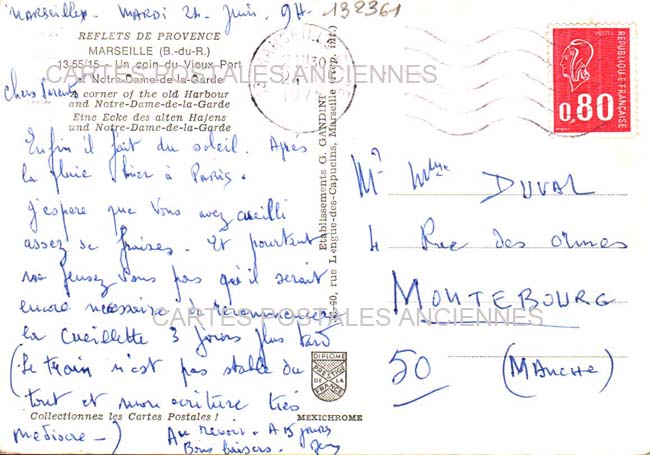 Marseille. Mardi 24 Juin. 9H.
132361
REFLETS DE PROVENCE
MARSEILLE (B.-du-R.)
13.55/15 - Un coin du Vieux Port
et Notre-Dame-de-la-Garde
A corner of the old Harbour
and Notre-Dame-de-la-Garde
Eine Ecke des alten Hafens
und Notre-Dame-de-la-Garde
CARTES POSTALES ANCIENNES
Chers Parents
Enfin il fait du soleil. Après
la pluie hier à Paris.
J'espère que vous avez cueilli
assez de fraises. Et pourtant
ne pensez vous pas qu'il serait
encore nécessaire de recommencer
la cueillette 3 jours plus tard
(Le train n'est pas stable du
tout et mon écriture très
médiocre -)
Au revoir. A 15 jours
Bons baisers.
Collectionnez les Cartes Postales !
MEXICHROME
DIPLOME
PRESTIGE
DE LA
FRANCE
Etablissements G. GANDINI
rue Longue-des-Capucins, Marseille (rep. int.)
REPUBLIQUE FRANCAISE
POSTES
0,80
Mr Mme DUVAL
4 Rue des ormes
MONTEBOURG
50 (MANCHE)
CARTES POSTALES ANCIENNES